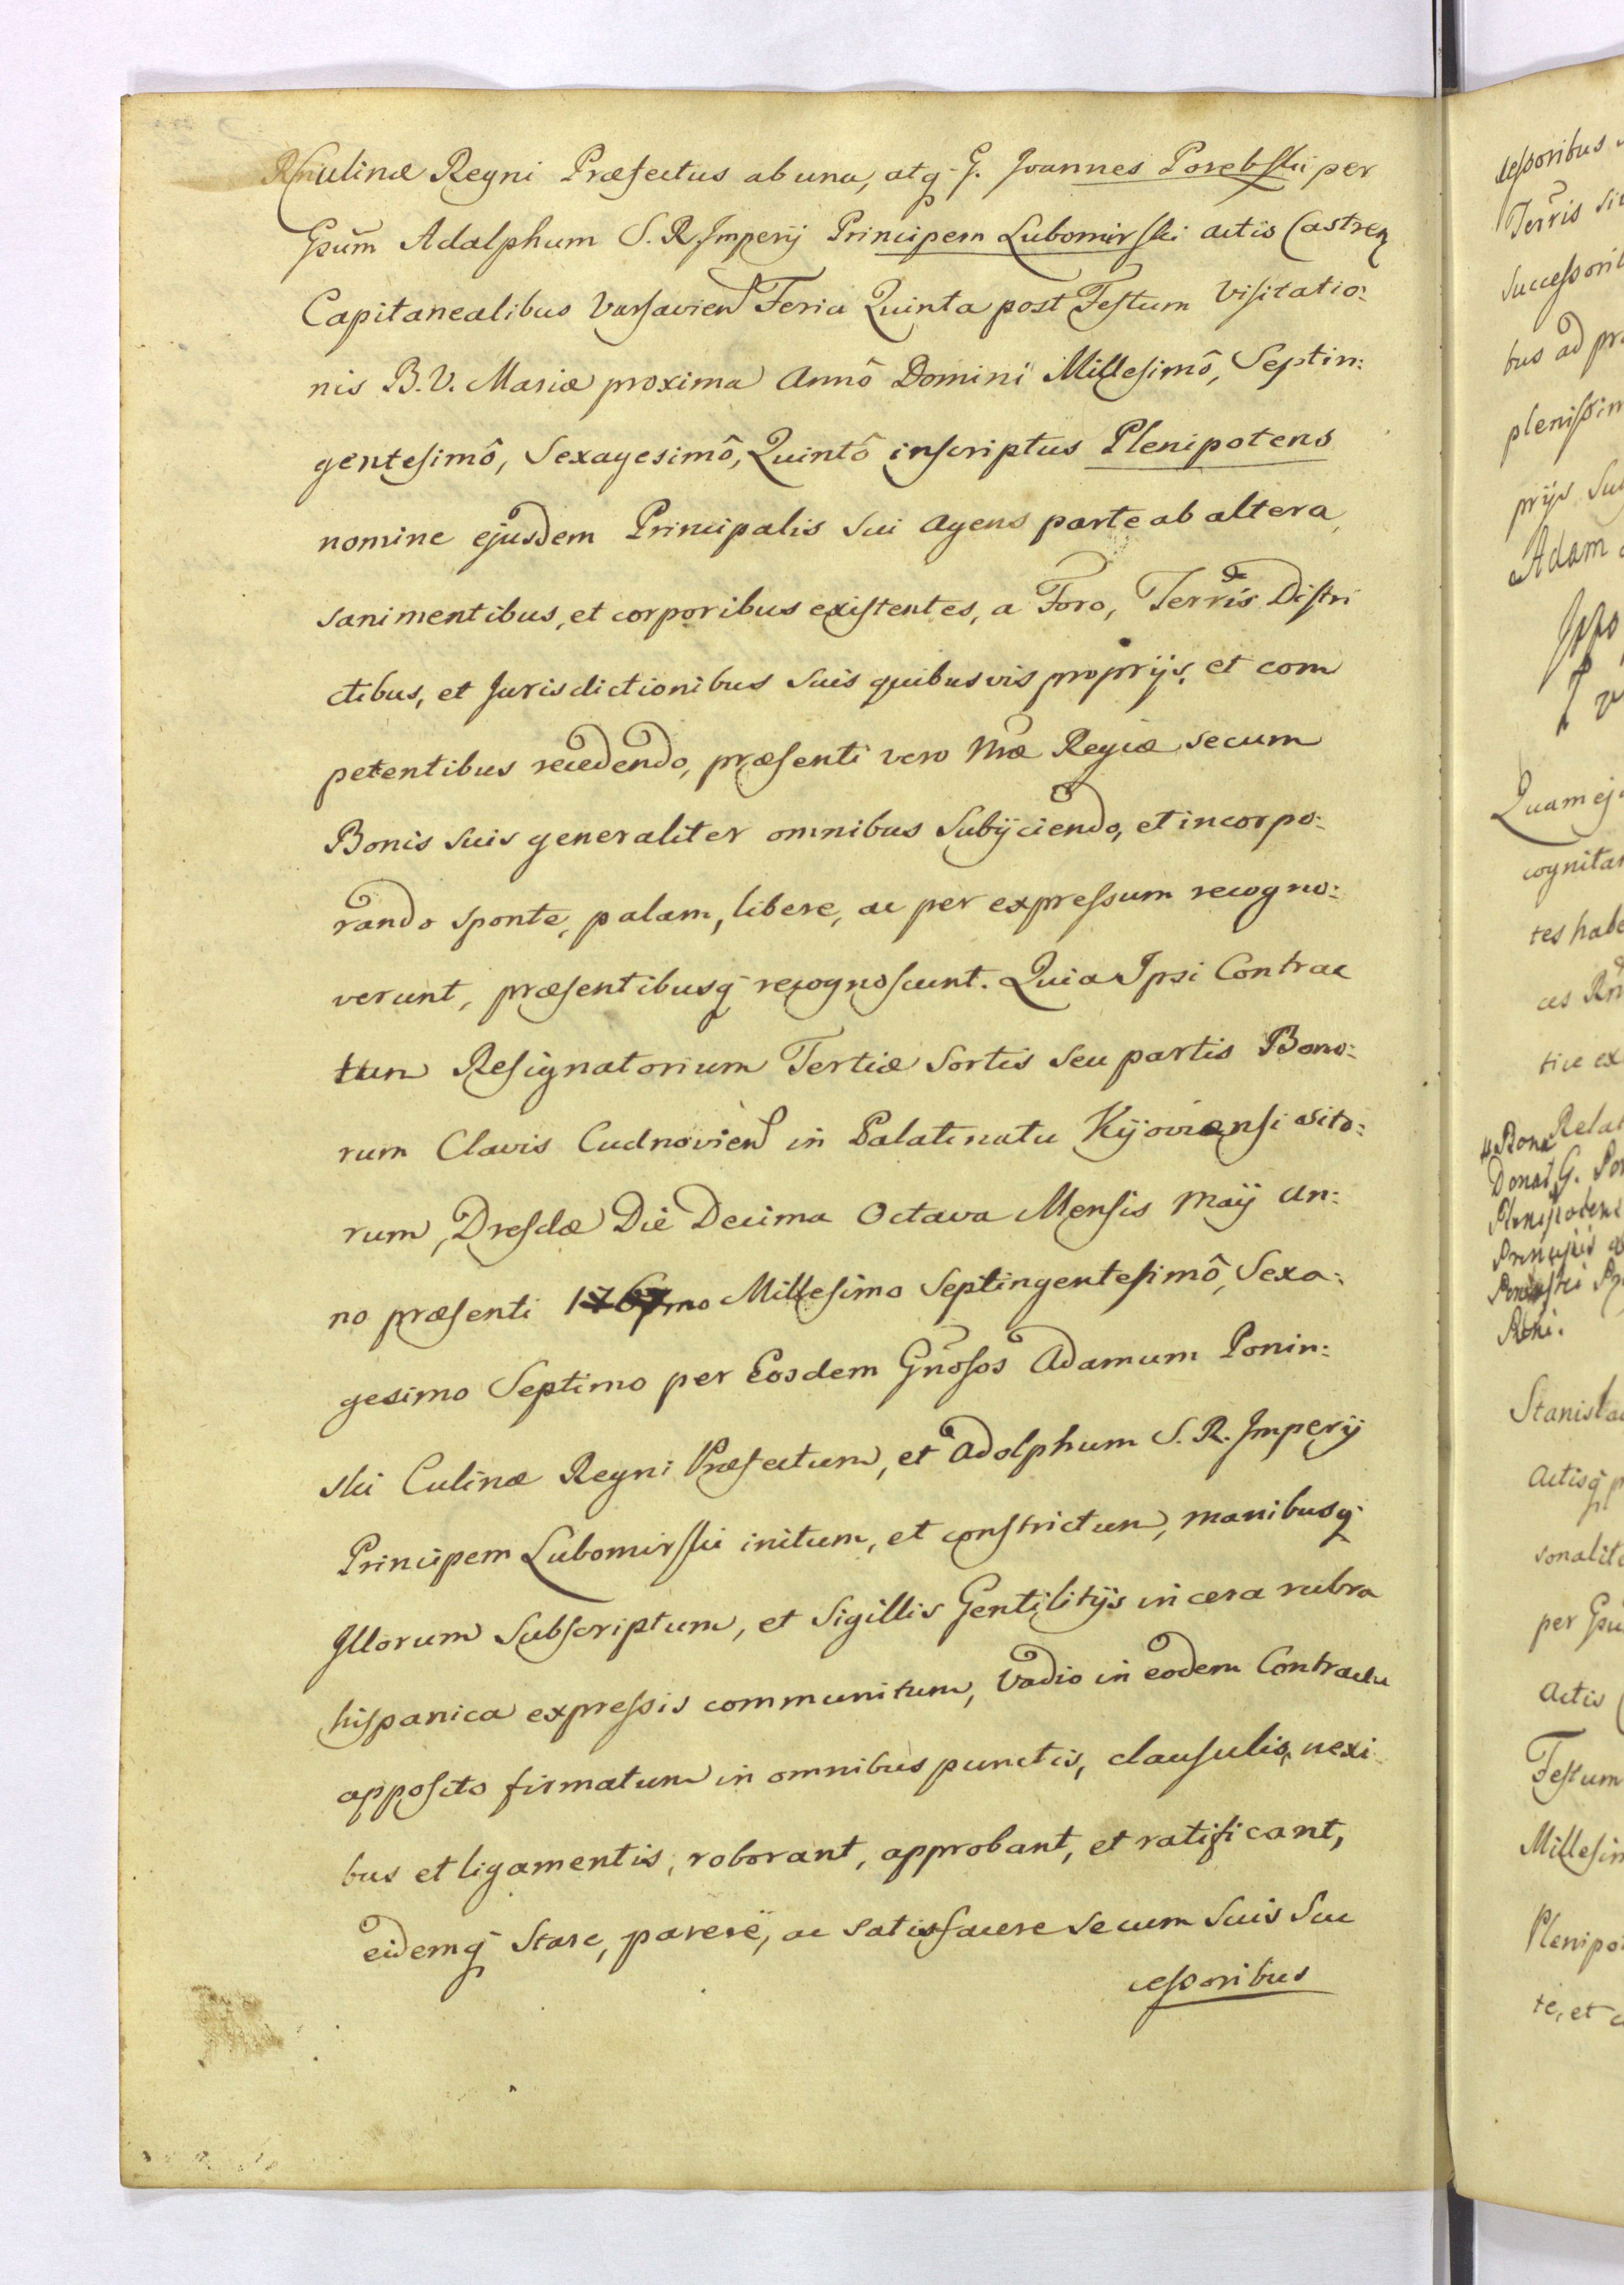 Culinæ Regni Præfectus ab una, atq G. Joannes Porebski per
Gsum Adalphum S. R. Imperij Principem Lubomirski actis Castren
Capitanealibus Varsavien Feria Quinta post Festum Visitatio:
nis B. V. Mariæ proxima Annô Domini Millesimô, Septin:
gentesimô, Sexagesimô, Quintô inscriptus Plenipotens
nomine ejusdem Principalis sui agens parte ab altera,
sani mentibus, et corporibus existentes, a Foro, Terris Distri
ctibus, et Jurisdictionibus suis quibusvis proprijs, et com
petentibus recedendo, præsenti vero Mæ Regiæ secum
Bonis suis generaliter omnibus Subijciendo, et incorpo:
rando sponte, palam, libere, ac per expressum recogno:
verunt, præsentibusq recognoscunt. Quia Ipsi Contrac
tum Resignatorium Tertiæ Sortis Seu partis Bono:
rum Clavis Cudnovien in Palatinatu Kijoviensi sito:
rum, Dresdæ Die Decima Octava Mensis Maij An:
no præsenti 1767mo Millesimo Septingentesimô, Sexa:
gesimo Septimo per Eosdem Gnosos Adamum Ponin:
ski Culinæ Regni Præfectum, et Adolphum S. R. Imperij
Principem Lubomirski initum, et constrictum, manibusq
Illorum Subscriptum, et Sigillis Gentilitijs in cera rubra
hispanica expressis communitum, Vadio in eodem Contractu
apposito firmatum in omnibus punctis, clausulis, nexi
bus et ligamentis, roborant, approbant, et ratificant,
eidemq Stare, parere, ac satisfacere secum Suis Suc
cessoribus
cessoribus
Terris
Successorib
bus ad pr
plenissim
prijs Su
Adam
Quam ej
cognitar
tes habe
Relat
Bona
Donat G. Po
Plenipotens
Principis
Stanisla
Actisq p
sonalit
per Gsu
Actis
Festum
Millesim
Plenipo
te, et c